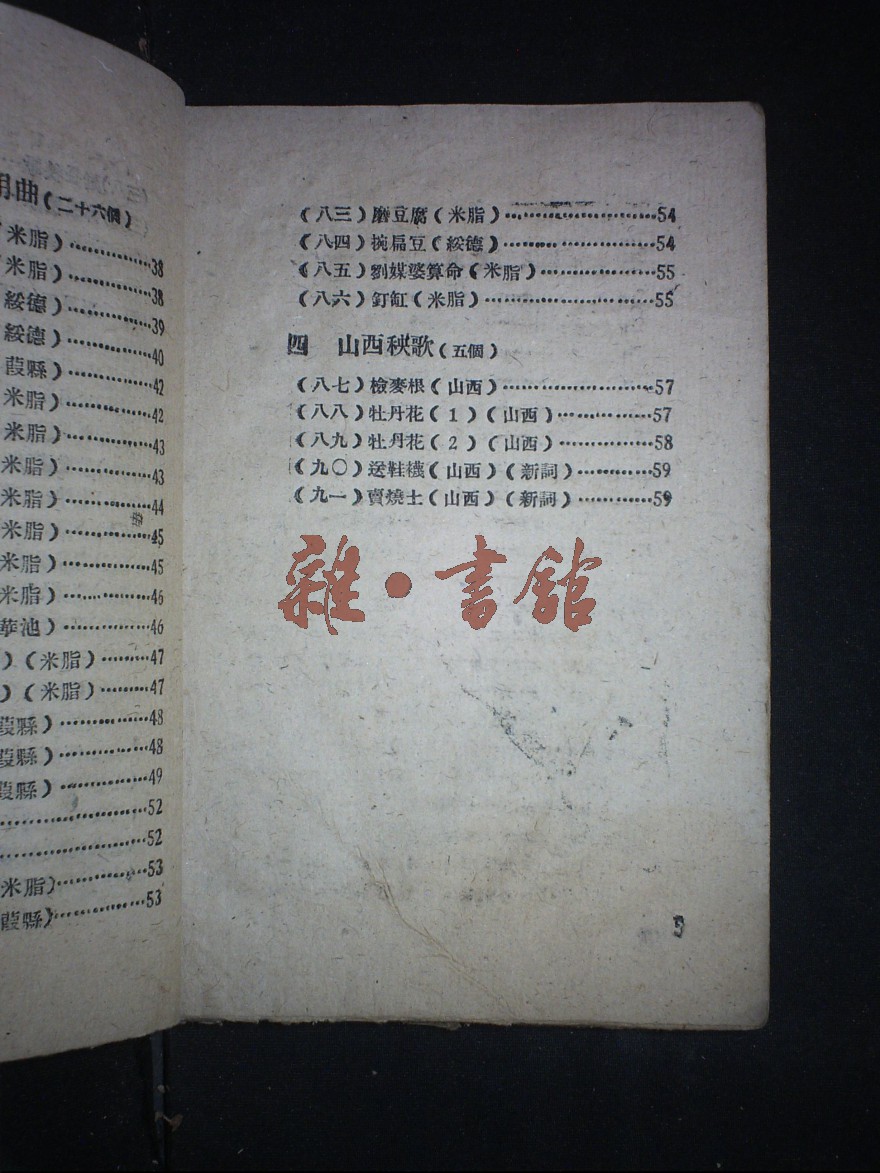 用曲（二十六個）
米脂）……………38
（米脂）……………38
（綏德）……………39
綏德）……………40
葭縣）……………42
米脂）……………42
米脂）……………43
米脂）……………43
米脂）……………44
米脂）……………45
米脂）……………45
米脂）……………46
華池）……………46
）（米脂）………47
）（米脂）………47
葭縣）……………48
葭縣）……………48
葭縣）……………49
……………52
……………52
米脂）……………53
葭縣）……………53
（八三）磨豆腐（米脂）……………54
（八四）捥扁豆（綏德）……………54
（八五）劉媒婆算命（米脂）……………55
（八六）釘缸（米脂）……………55
四　山西秧歌（五個）
（八七）檢麥根（山西）……………57
（八八）牡丹花（1）（山西）……………57
（八九）牡丹花（2）（山西）……………58
（九〇）送鞋襪（山西）（新詞）…………59
（九一）賣燒土（山西）（新詞）…………59
雜·書館
5